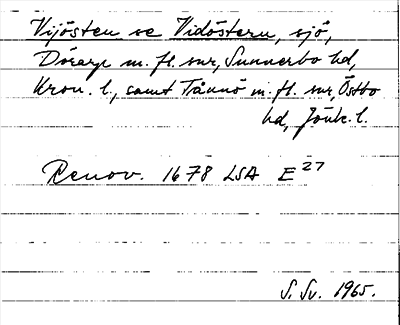 Vijösten se Vidöstern, sjö,
Dörarp m. fl. snr, Sunnerbo hd,
Kron. l., samt Tånnö m. fl. snr, Östbo
hd, Jönk. l.
Renov. 1678 LSA E 27
S. Sv. 1965.